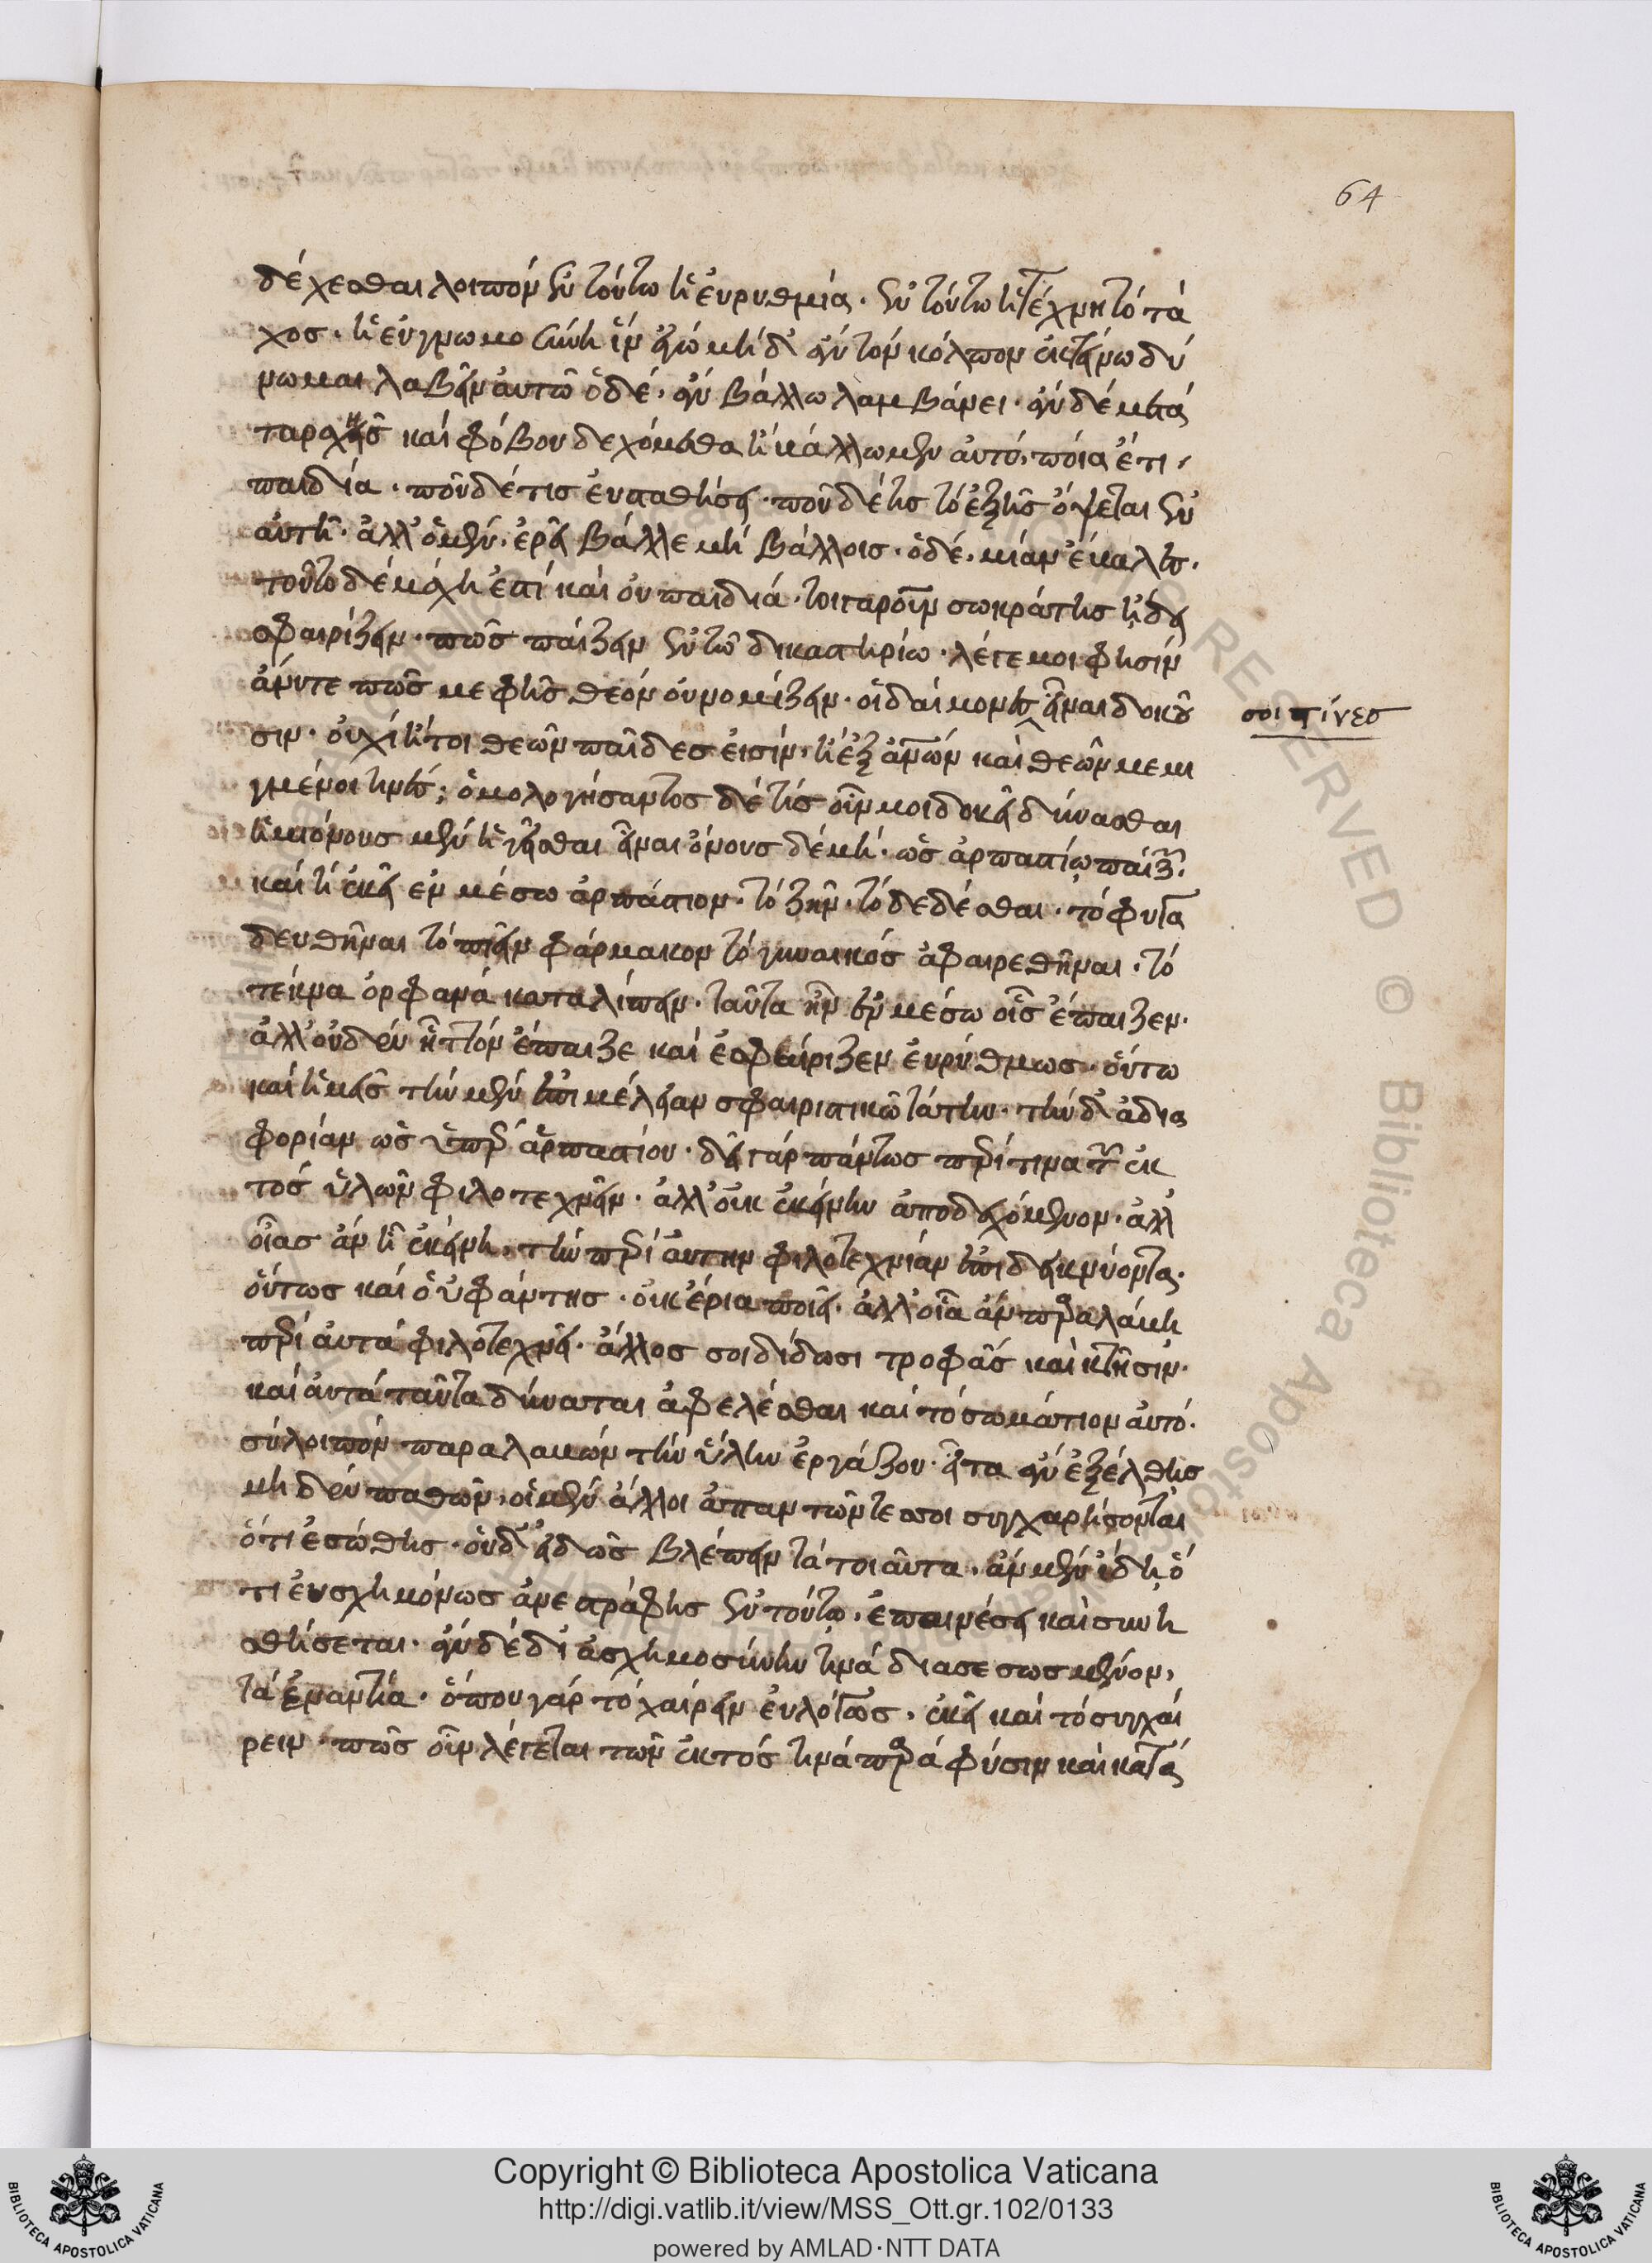 64
δέχεσθαι λοιπὸν ἐν τούτω ἡ εὐρυθμία. ἐν τούτω ἡ τέχνη τὸ τά
χος. ἡ εὐγνωμοσύνη ἵν ἐγὼ μὴ δ ἐὰν τὸν κόλπον ἐκτείνω δύ
νωμαι λαβεῖν αὐτῶ ὁ δέ. ἐὰν βάλλω λαμβάνει. ἐὰν δὲ μετὰ
ταραχῆς καὶ φόβου δεχόμεθα ἢ βάλλωμεν αὐτό, ποία ἔτι
παιδιά. ποῦ δέ τις εὐσταθήσει. ποῦ δέ τις τὸ ἑξῆς ὄψεται ἐν
αὐτῆ. ἀλλ ὁ μὲν. ἐρεῖ βάλλε μὴ βάλλοις. ὁ δέ. μίαν ἔβαλες.
τοῦτο δὲ μάχη ἐστὶ καὶ οὐ παιδιά. τοιγαροῦν σωκράτης ἤδει
σφαιρίζειν. πῶς παίζειν ἐν τῶ δικαστηρίω. λέγε μοι φησὶν
ἄνυτε πῶς με φῆς θεὸν οὐ νομίζειν. οἱ δαίμονές εἶναι δοκοῦ
σοι τίνες
σιν. οὐχὶ ἤτοι θεῶν παῖδες εἰσίν. ἢ ἐξ ἀνῶν καὶ θεῶν μεμι
γμένοι τινές; ὁμολογήσαντος δὲ τίς οὖν μοι δοκεῖ δύνασθαι
ἡμιόνους μὲν ἡγεῖσθαι εἶναι ὄνους δὲ μή. ὡς ἁρπαστίῳ παίζ.
καὶ τί ἐκεῖ ἐν μέσω ἁρπάστιον. τὸ ζῆν. τὸ δεδέσθαι. τὸ φυγα
δευθῆναι τὸ πιεῖν φάρμακον τὸ γυναικός ἀφαιρεθῆναι. τὸ
τέκνα ὀρφανὰ καταλίπειν. ταῦτα ἦν ἐν μέσω οἷς ἔπαιζεν.
ἀλλ οὐδὲν ἧττον ἔπαιζε καὶ ἐσφαίριζεν εὐρύθμως. οὕτω
καὶ ἡμεῖς τὴν μὲν ἐπιμέλειαν σφαιριστικωτάτην. τὴν δ ἀδια
φορίαν ὡς ὑπὲρ ἁρπαστίου. δεῖ γὰρ πάντως περί τινα τῶν ἐκ
τὸς ὑλῶν φιλοτεχνεῖν. ἀλλ οὐκ ἐκείνην ἀποδεχόμενον. ἀλλ
οἵας ἂν ἦ ἐκείνη, τὴν περὶ αὐτὴν φιλοτεχνίαν ἐπιδεικνύοντα.
οὕτως καὶ ὁ ὑφάντης. οὐκ ἔρια ποιεῖ. ἀλλ οἷα ἂν παραλάβη
περὶ αὐτὰ φιλοτεχνεῖ. ἄλλος σοι δίδωσι τροφὰς καὶ κτῆσιν.
καὶ αὐτὰ ταῦτα δύναται ἀφελέσθαι καὶ τὸ σωμάτιον αὐτό.
σὺ λοιπὸν παραλαβὼν τὴν ὕλην ἐργάζου. εἶτα ἐὰν ἐξέλθης
μηδὲν παθών, οἱ μὲν ἄλλοι ἀπαντῶντές σοι συγχαρήσονται
ὅτι ἐσώθης. ὁ δ εἰδὼς βλέπειν τὰ τοιαῦτα. ἂν μὲν ἴδῃ ὅ
τι εὐσχημόνως ἀνεστράφης ἐν τούτῳ. ἐπαινέσει καὶ συνη
σθήσεται. ἐὰν δὲ δι ἀσχημοσύνην τινὰ διασεσωσμένον,
τὰ ἐναντία. ὅπου γὰρ τὸ χαίρειν εὐλόγως. ἐκεῖ καὶ τὸ συγχαί
ρειν. πῶς οὖν λέγεται τῶν ἐκτός τινὰ παρὰ φύσιν καὶ κατὰ
Copyright © Biblioteca Apostolica Vaticana
http://digi.vatlib.it/view/MSS_Ott.gr.102/0133
powered by AMLAD·NTT DATA